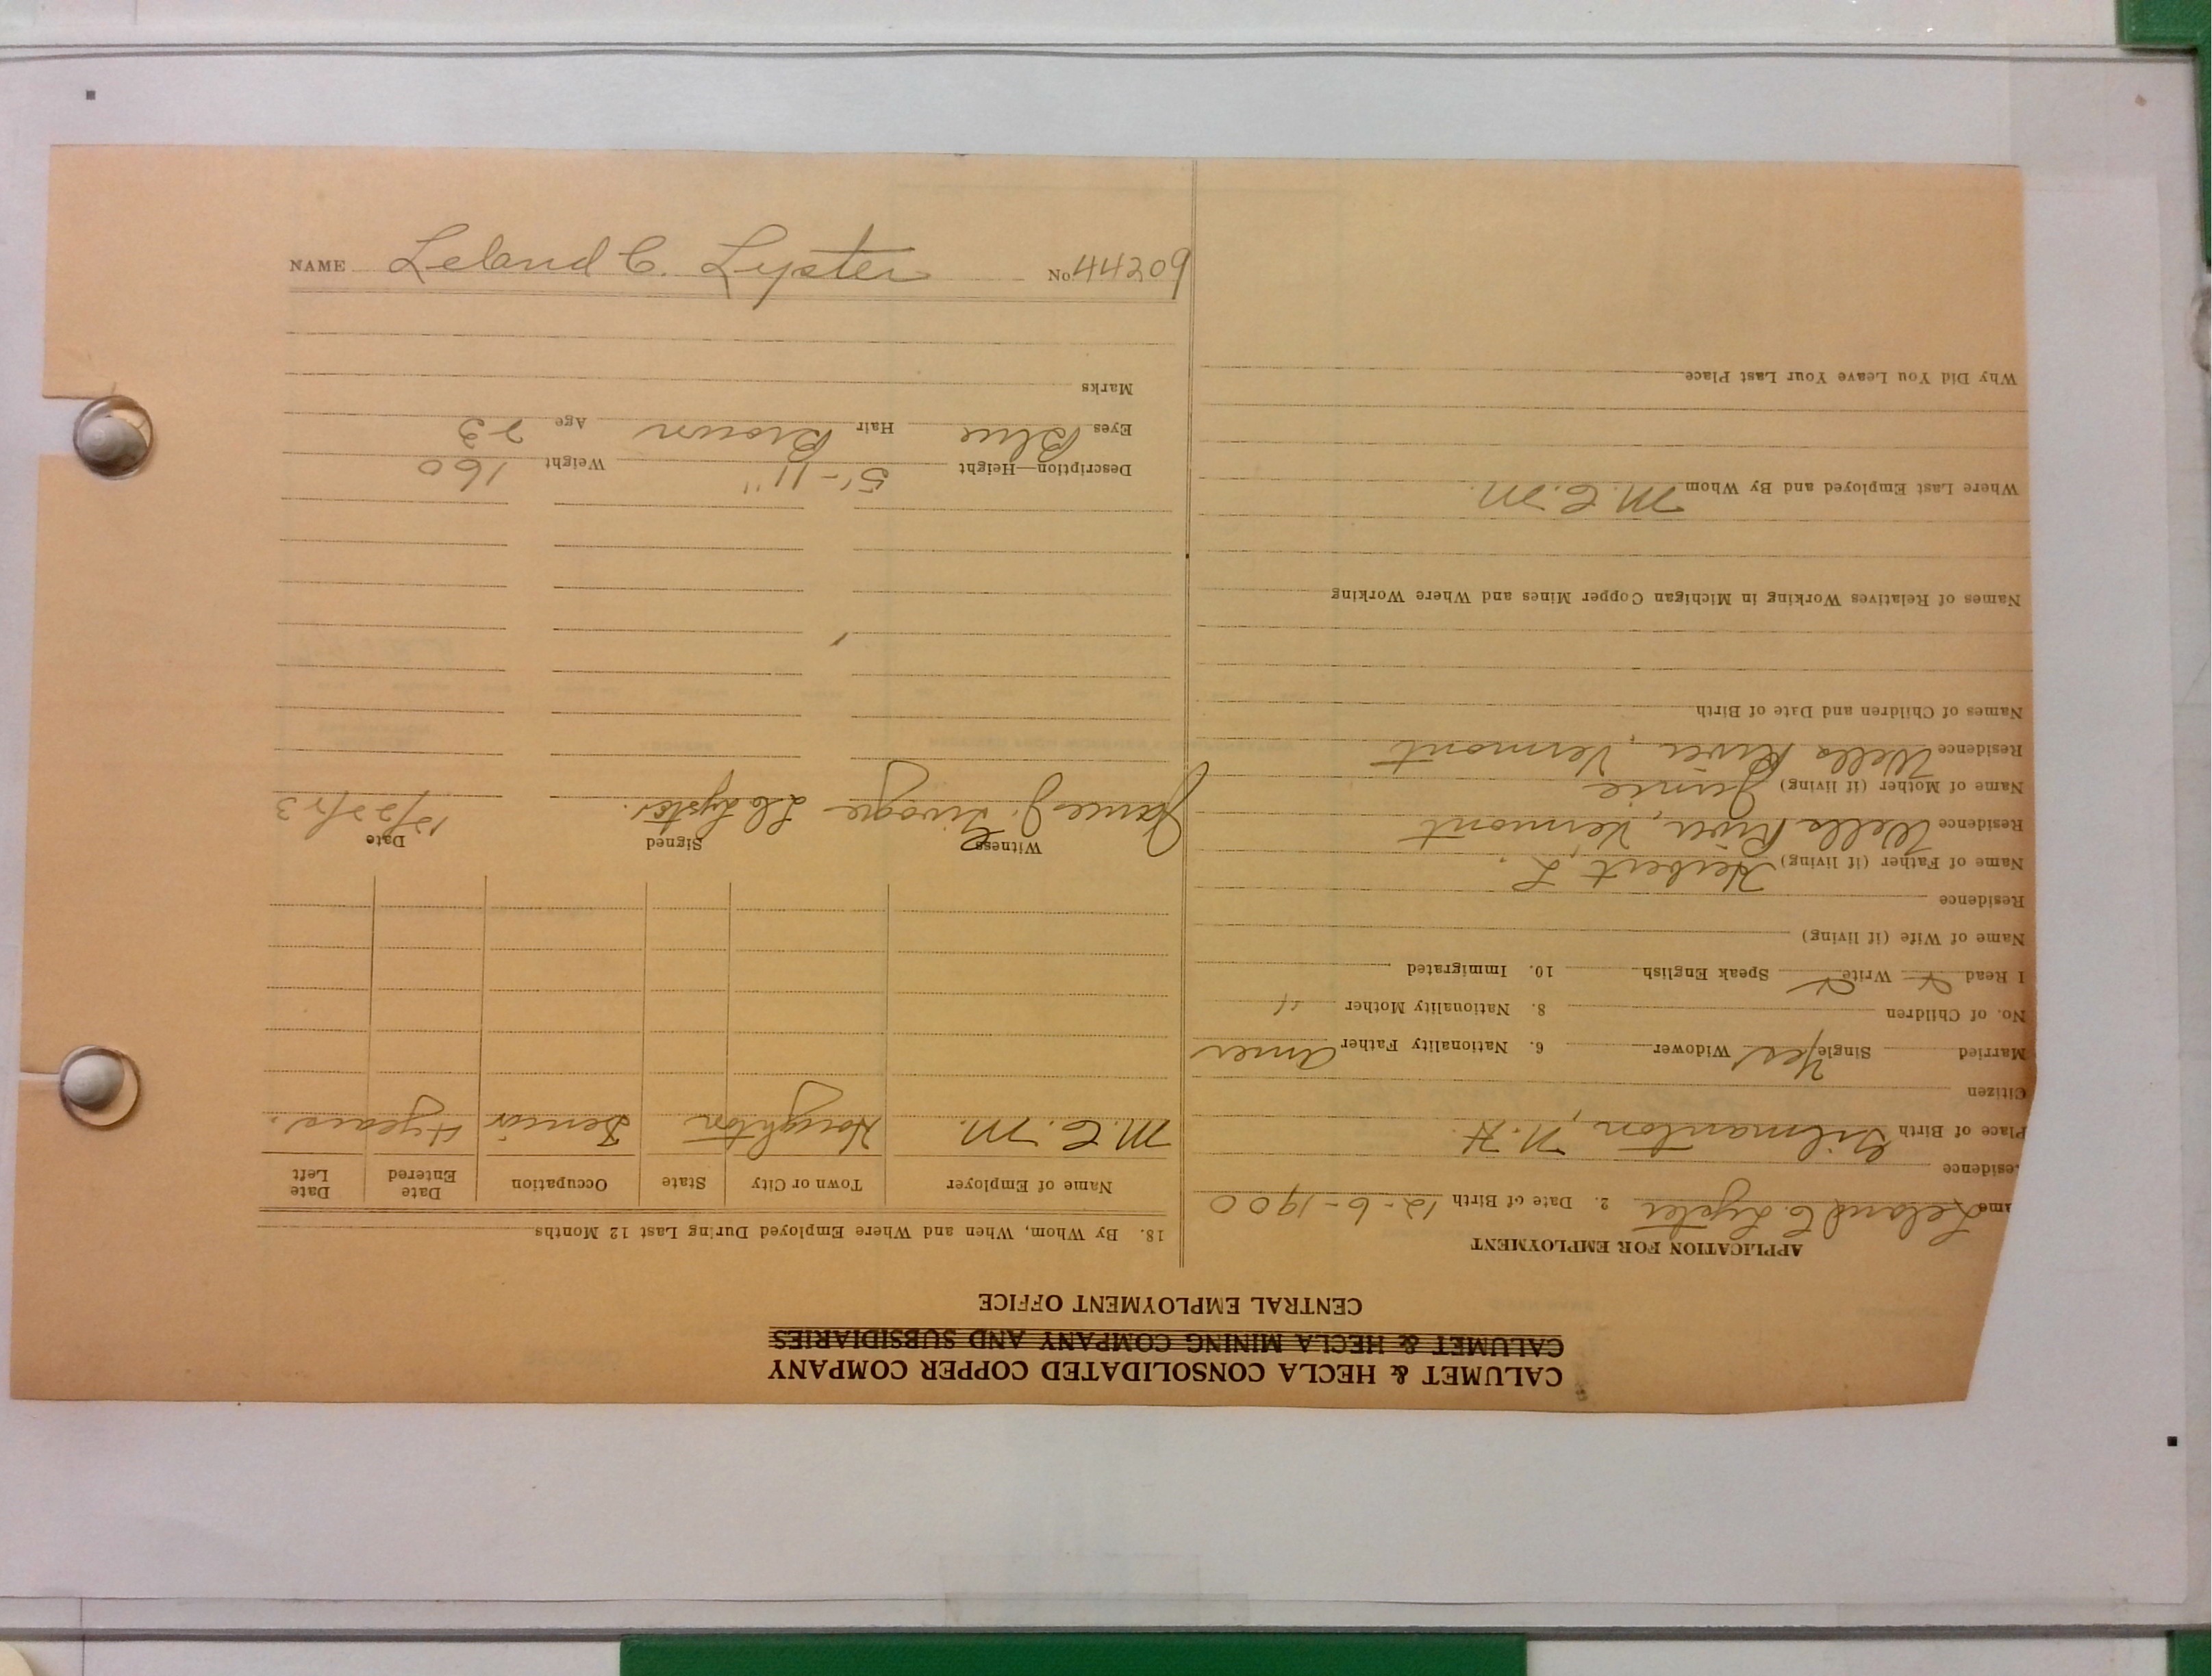 CALUMET & HECLA CONSOLIDATED COPPER COMPANY
CALUMET & HECLA MINING COMPANY AND SUBSIDIARIES
CENTRAL EMPLOYMENT OFFICE
APPLICATION FOR EMPLOYMENT
ame Leland C. Lyster 2. Date of Birth 12-6-1900
esidence
Place of Birth Gilmanton, N.H.
Citizen
Married Single Yes Widower 6. Nationality Father Amer
No. of Children 8. Nationality Mother "
I Read Write Speak English 10. Immigrated
Name of Wife (if living)
Residence
Name of Father (if living) Herbert L.
Residence Wells River, Vermont
Name of Mother (if living) Jennie
Residence Wells River, Vermont
Names of Children and Date of Birth
Names of Relatives Working in Michigan Copper Mines and Where Working
Where Last Employed and By Whom M.C.M.
Why Did You Leave Your Last Place
18. By Whom, When and Where Employed During Last 12 Months
Name of Employer Town or City State Occupation Date Entered Date Left
M.C.M. Houghton Senior 4 years.
Witness Signed Date
James J. L C Lyster. 12/22/23
Description—Height 5'-11" Weight 160
Eyes Blue Hair Brown Age 23
Marks
NAME Leland C. Lyster No. 44209